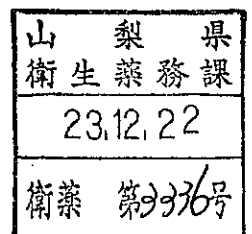 山梨県
衛生薬務課
23.12.22
衛薬 第3336号